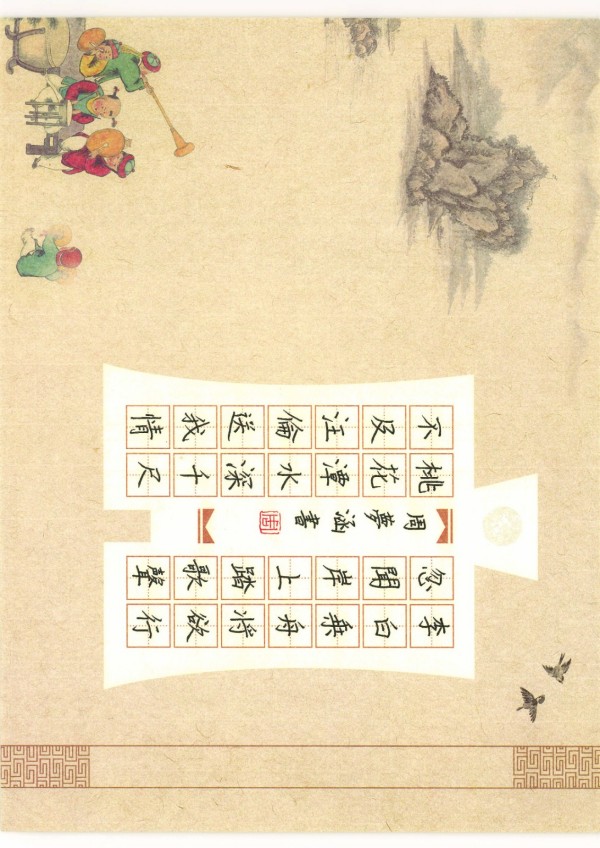 李白乘舟将欲行
忽聞岸上踏歌聲
桃花潭水深千尺
不及汪倫送我情
周夢涵書
周